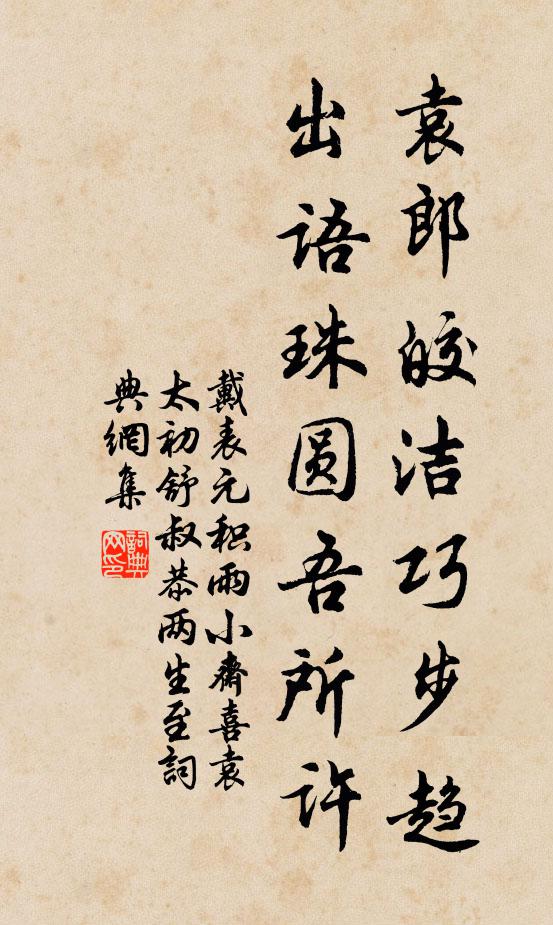 袁郎皎洁巧步趋
出语珠圆吾所许
戴表元积雨小齋喜袁
太初舒叔恭两生至詞
典網集
詞典网印